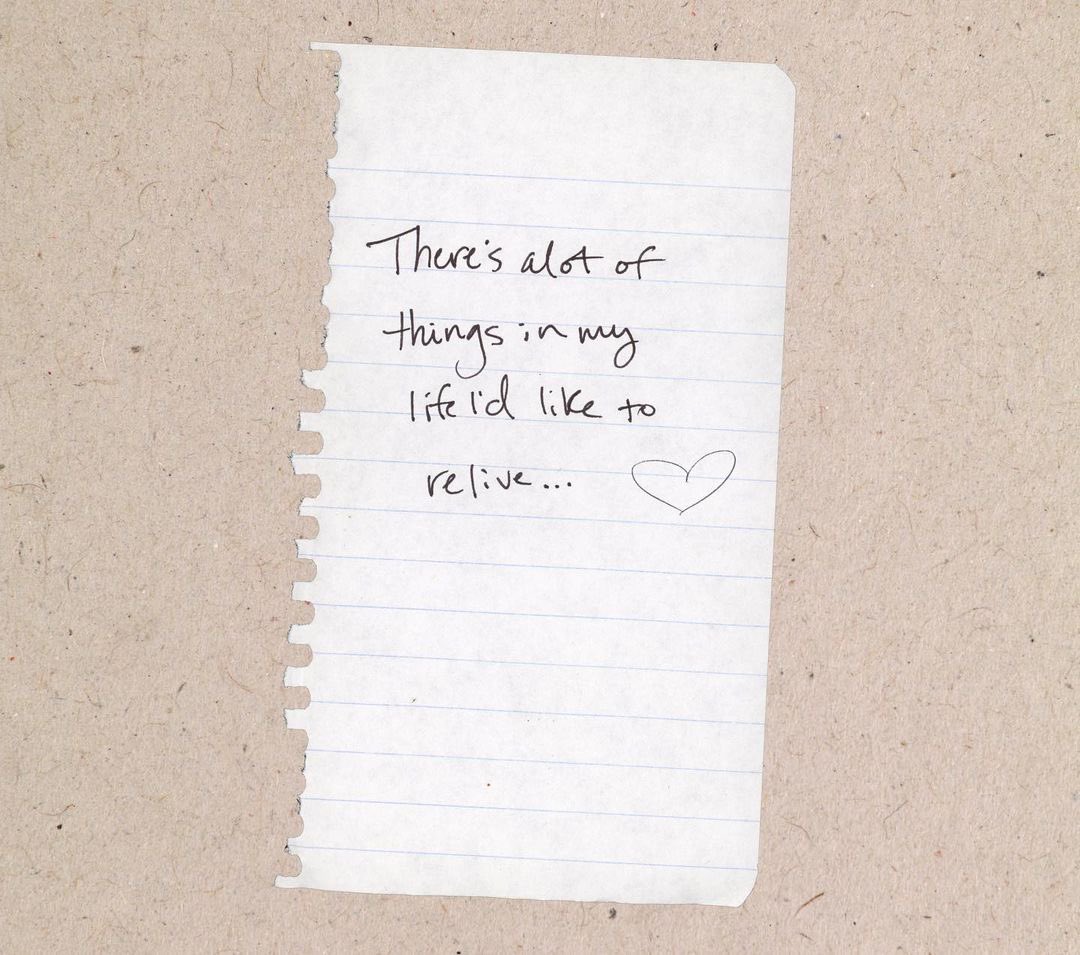 There's alot of
things in my
life I'd like to
relive...